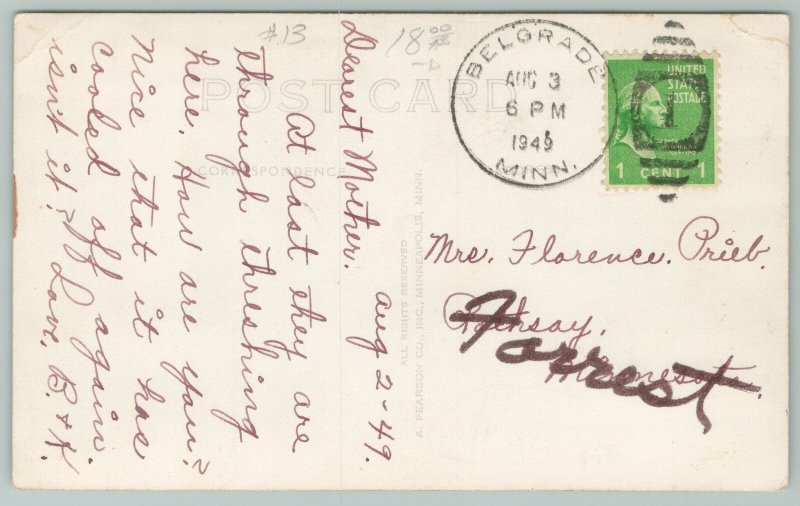 #13
18
POST CARD
CORRESPONDENCE
Dearest Mother.
Aug 2-49.
At last they are
through threshing
here. How are you?
Nice that it has
cooled off again
isn't it? Love, B. & H.
ALL RIGHTS RESERVED
A. PEARSON CO., INC., MINNEAPOLIS, MINN.
BELGRADE
AUG 3
6 PM
1949
MINN.
UNITED
STATES
POSTAGE
1 CENT 1
Mrs. Florence. Prieb.
Minnesota.
Forrest